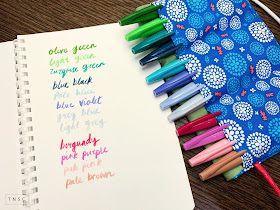 olive green
light green
turquoise green
blue black
pale blue
blue violet
grey blue
light grey
burgundy
pink purple
pale pink
pale brown
TNSC